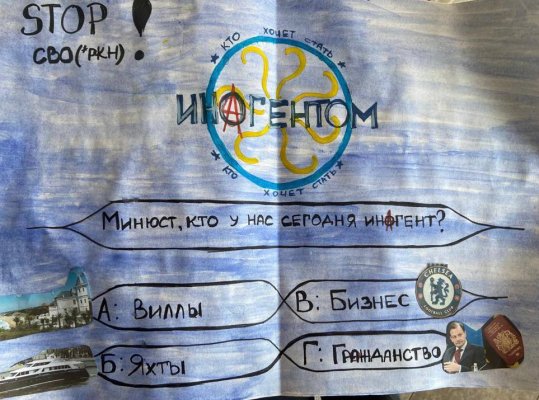 STOP!
СВО(*РКН)
КТО ХОЧЕТ СТАТЬ
ИНАГЕНТОМ
КТО ХОЧЕТ СТАТЬ
Минюст, кто у нас сегодня инагент?
А: Виллы
В: Бизнес
CHELSEA
FOOTBALL CLUB
Б: Яхты
Г: Гражданство